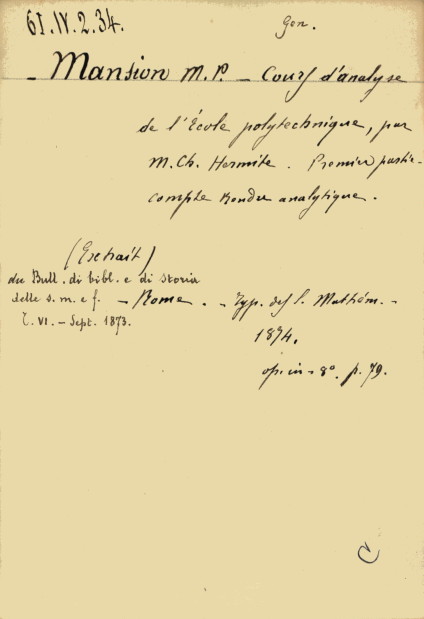 61.IV.2.34.
Gen.
- Mansion M. P. - Cours d'analyse
de l'École polytechnique, par
M. Ch. Hermite. Premier partie.
compte rendu analytique.
(Extrait)
du Bull. di bibl. e di storia
delle s. m. e f. - Rome. - Typ. des S. Mathém. -
T. VI. - Sept. 1873.
1874.
op. in-8°. p. 79.
C